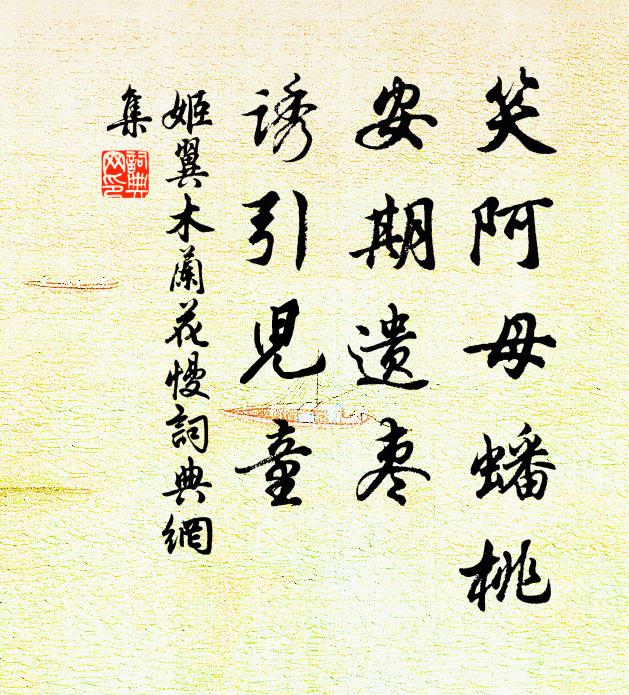 笑阿母蟠桃
安期遗枣
誘引児童
姬翼木蘭花慢詞典網
集
詞典网印